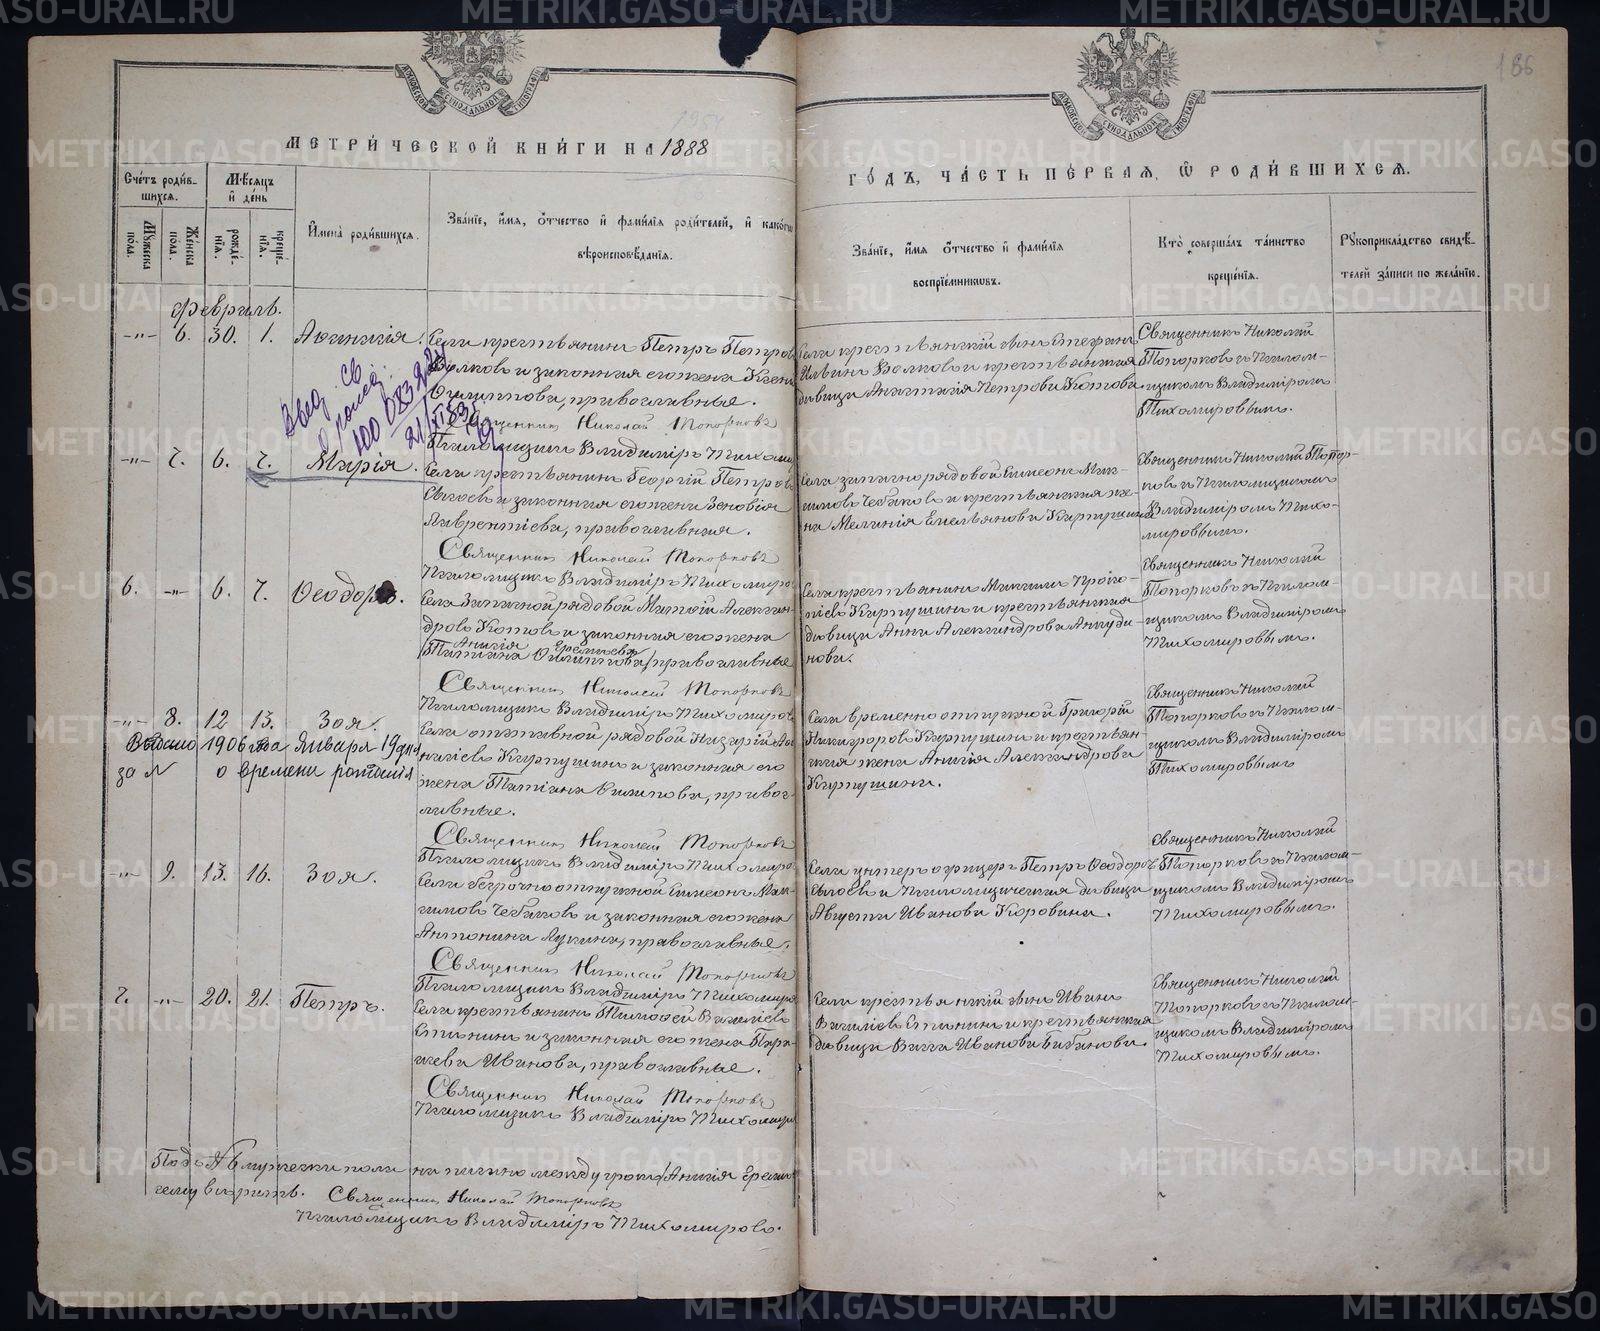 METRIKI.GASO-URAL.RU
186
МОСКОВСКОЙ СѴНОДАЛЬНОЙ ТИПОГРАФІИ
МЕТРИ́ЧЕСКОЙ КНИ́ГИ НА 1888
ГО́ДЪ, ЧА́СТЬ ПЕ́РВАЯ, Ѡ РОДИ́ВШИХСЯ.
Сче́тъ роди́вшихся.
Му́жеска по́ла.
Же́нска по́ла.
Мѣ́сяцъ и де́нь
рожде́нїя.
креще́нїя.
Имена̀ роди́вшихся.
Зва́нїе, и́мя, ѻ́тчество и фами́лїя роди́телей, и како́гѡ
вѣроисповѣ́данїя.
Зва́нїе, и́мя ѻ́тчество и фами́лїя
воспрїе́мникѡвъ.
Кто̀ соверша́лъ та́инство
креще́нїя.
Рꙋкоприкла́дство свидѣ́телей за́писи по жела́нїю.
Февраль.
-„- 6. 30. 1.
Села крестьянинъ Петръ Петровъ
Волковъ и законная его жена Ксенія
Филиппова, православные.
Священникъ Николай Топорковъ
Псаломщикъ Владиміръ Тихомировъ
Села крестьянскій сынъ Стефанъ
Ильинъ Волковъ и крестьянская
дѣвица Анастасія Петрова Котова.
Священникъ Николай
Топорковъ съ псаломщикомъ Владиміромъ
Тихомировымъ.
Выд. св.
о рожд.
21/XI 53
-„- 7. 6. 7. Марія.
Села крестьянинъ Георгій Петровъ
и законная его жена Зеновія
Лаврентіева, православныя.
Священникъ Николай Топорковъ
Псаломщикъ Владиміръ Тихомировъ
Села запасно рядовой Симеонъ Максимовъ
и крестьянская жена
Меланія Емельянова Карпушина
Священникъ Николай Топорковъ
съ псаломщикомъ
Владиміромъ Тихомировымъ.
6. -„- 6. 7. Ѳеодоръ.
Села Запасной рядовой
Александровъ Котовъ и законная его жена
Анисія Еремиева
Татіана Филиппова, православные
Священникъ Николай Топорковъ
Псаломщикъ Владиміръ Тихомировъ
Села крестьянинъ Максимъ Прокопіевъ
Карпушинъ и крестьянская
дѣвица Анна Александрова
Священникъ Николай
Топорковъ съ псаломщикомъ Владиміромъ
Тихомировымъ.
-„- 8. 12 13. Зоя.
Выдано 1906 года Января 19 дня
за № о времени рожденія
Села отставной рядовой Назарій
Карпушинъ и законная его
жена Татіана Филипова, православные.
Священникъ Николай Топорковъ
Псаломщикъ Владиміръ Тихомировъ
Села временно отпускной Григорій
Никифоровъ Карпушинъ и крестьянская
жена Анисія Александрова
Карпушина.
Священникъ Николай
Топорковъ съ псаломщикомъ Владиміромъ
Тихомировымъ
-„- 9. 13. 16. Зоя.
Села безсрочноотпускной Симеонъ Максимовъ
и законная его жена
Антонина Лукина, православные.
Священникъ Николай Топорковъ
Псаломщикъ Владиміръ Тихомировъ
Села унтеръ офицеръ Петръ Ѳеодоровъ
и Псаломщическая дѣвица
Августа Иванова Коровина.
Священникъ Николай
Топорковъ съ псаломщикомъ Владиміромъ
Тихомировымъ.
7. -„- 20. 21. Петръ.
Села крестьянинъ Тимоѳей Васильевъ
и законная его жена Параскева
Иванова, православные.
Священникъ Николай Топорковъ
Псаломщикъ Владиміръ Тихомировъ
Села крестьянскій сынъ Иванъ
Васильевъ и крестьянская
дѣвица Васса Иванова
Священникъ Николай
Топорковъ съ псаломщикомъ Владиміромъ
Тихомировымъ.
Подъ № 6 мужеска пола написано между строкъ Анисія
вѣрить. Священникъ Николай Топорковъ
Псаломщикъ Владиміръ Тихомировъ.